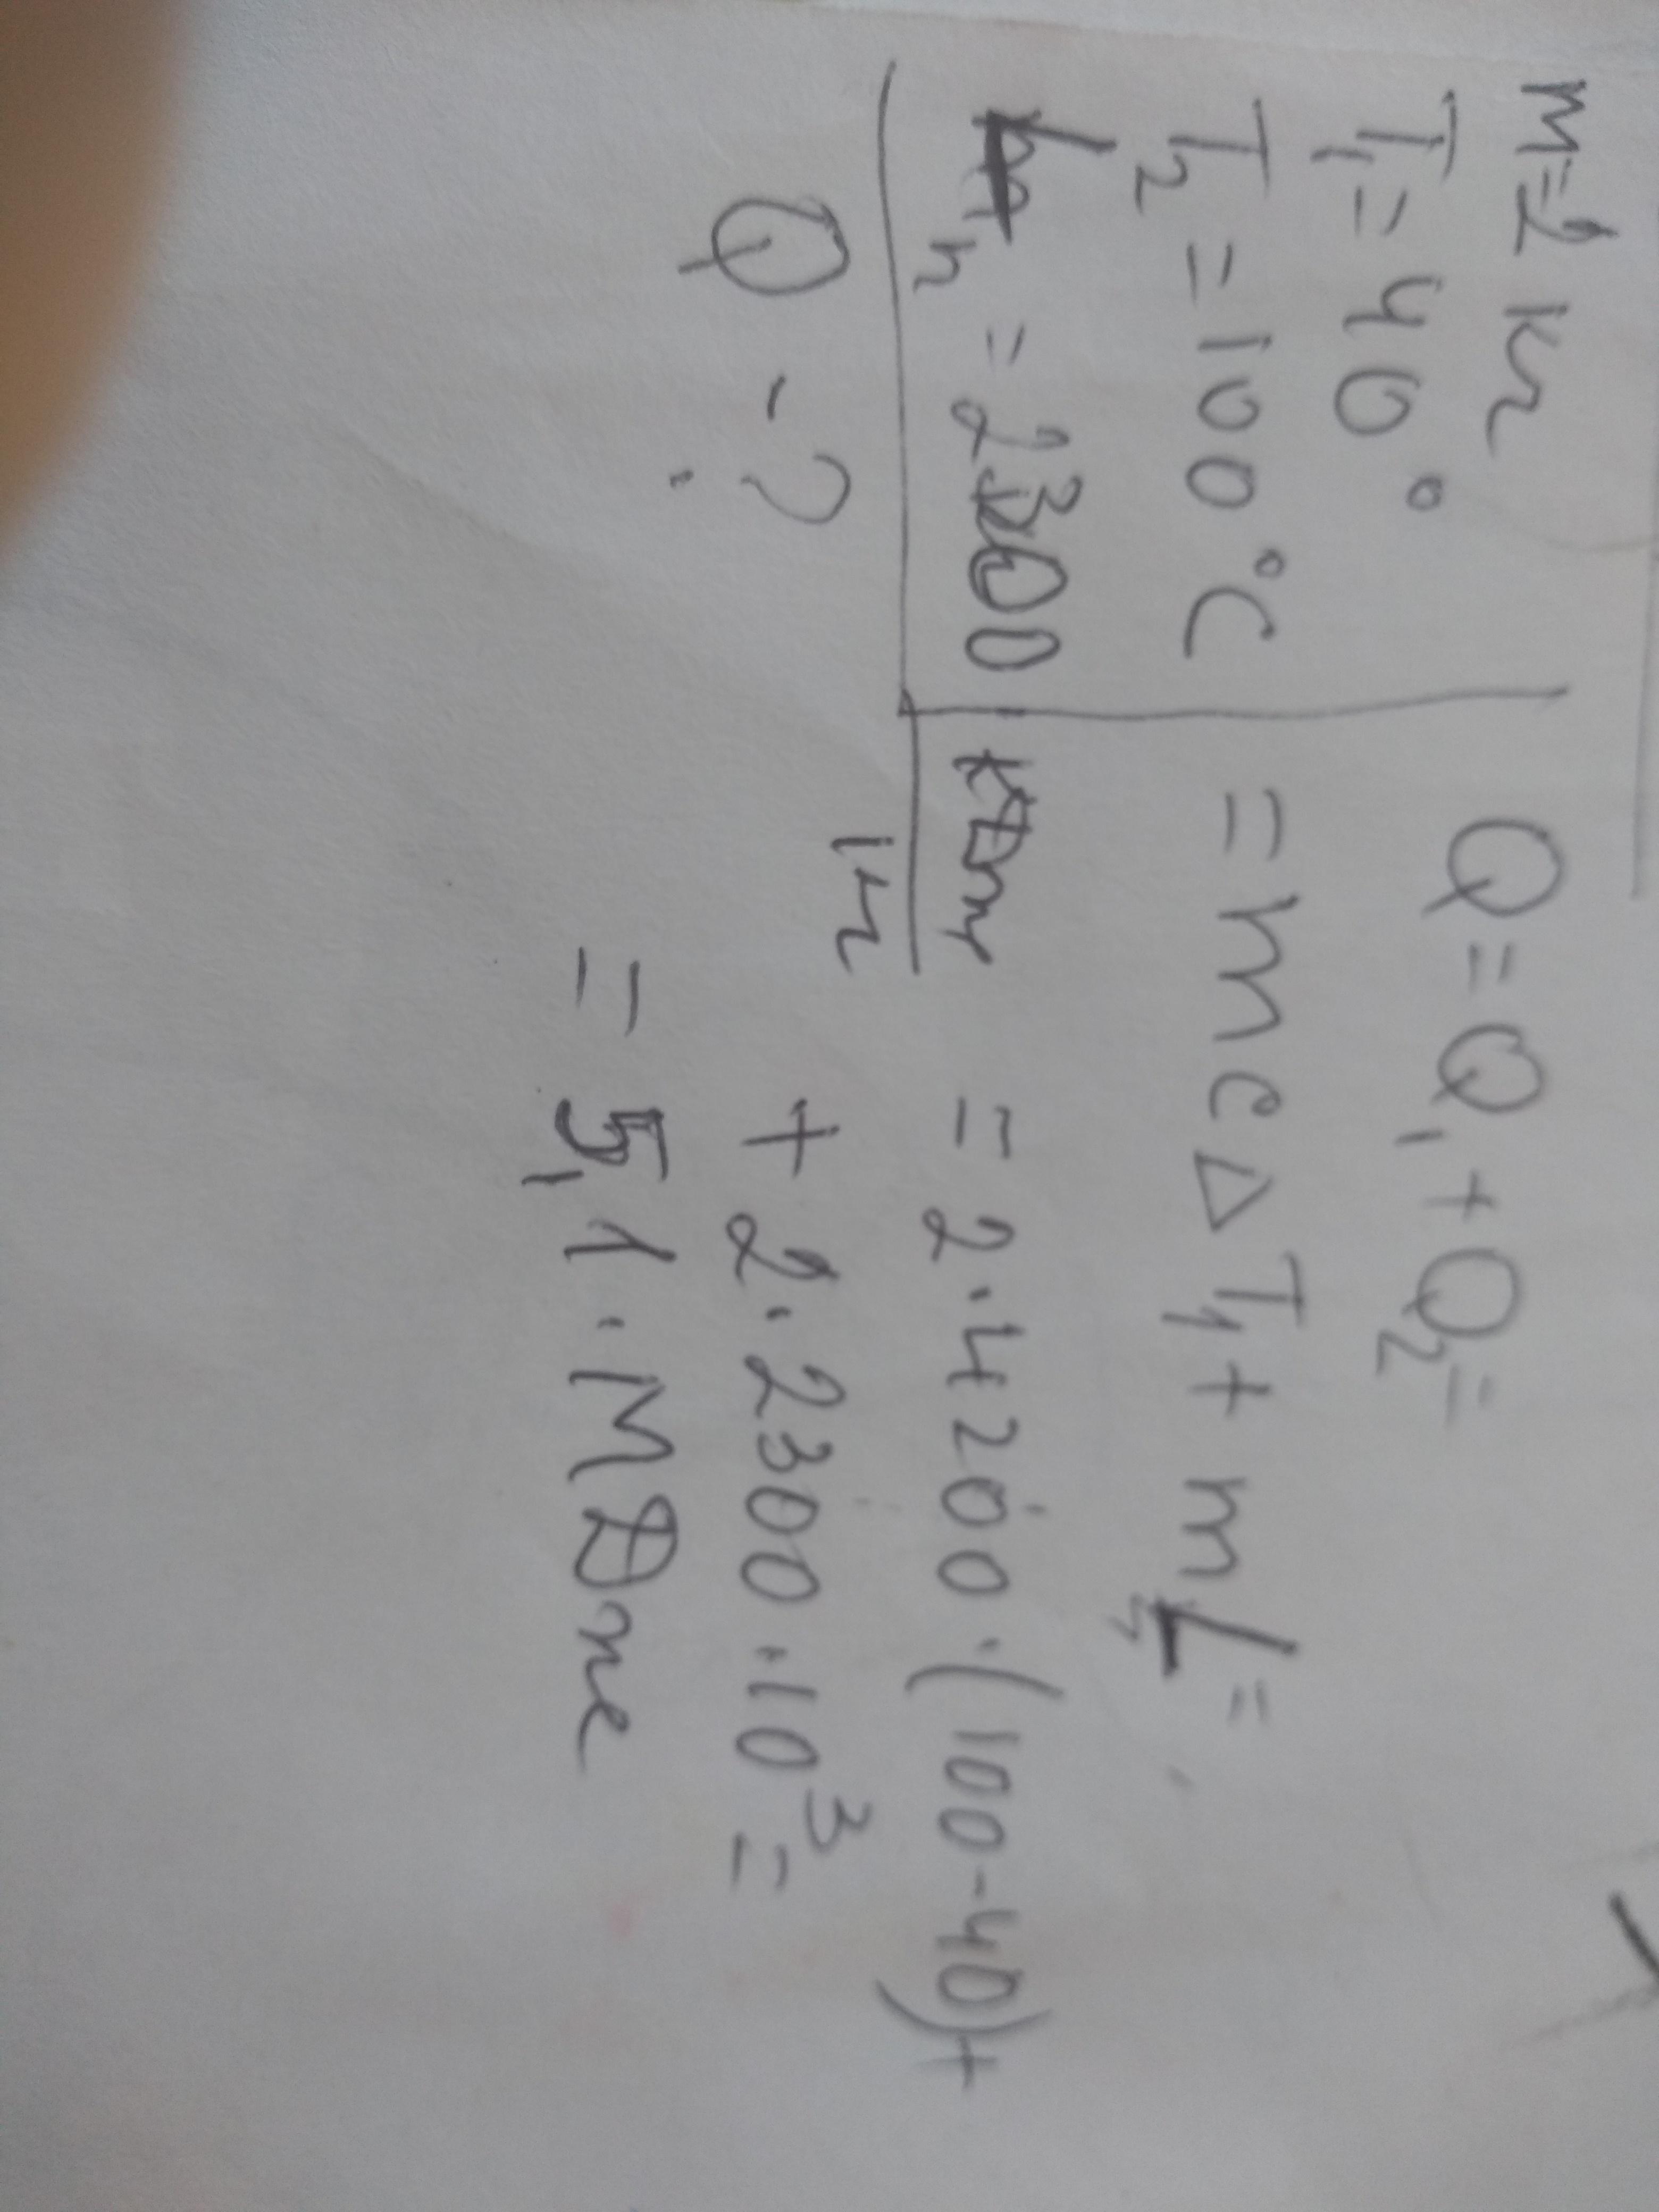 m=2 кг
T₁=40°
T₂=100°C
Lп=2300 кДж/кг
Q-?
Q=Q₁+Q₂=
=mcΔT₁+mL=
=2·4200·(100-40)+
+2·2300·10³=
=5,1·МДж